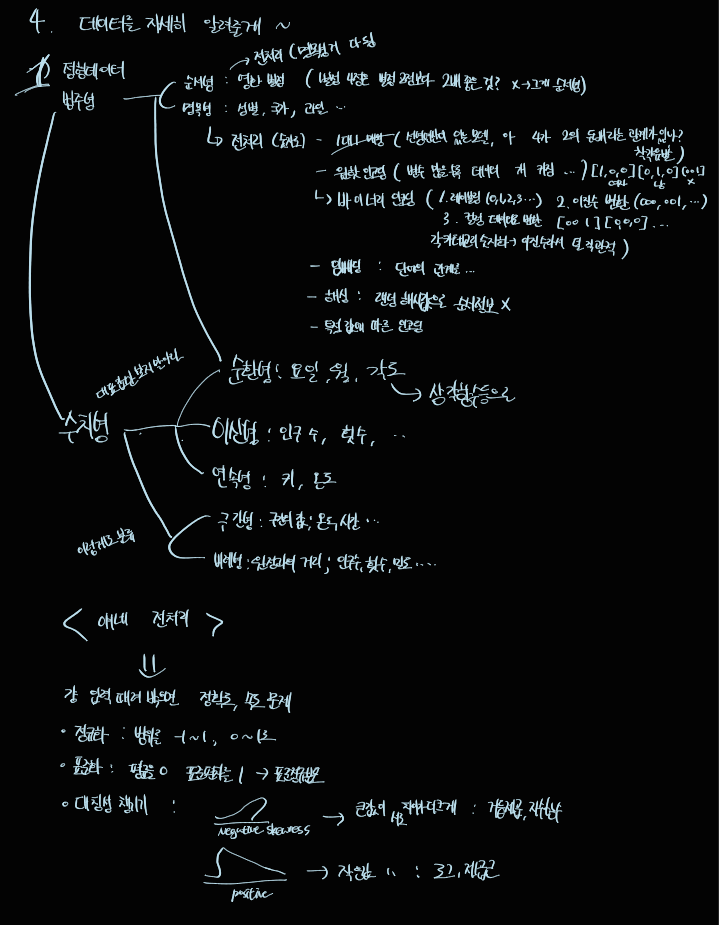 4. 데이터를 자세히 알려줄게 ~
1) 정형데이터
전처리 (명목형과 다름)
범주형
순서형 : 영화 별점 (별점 4점은 별점 2점보다 2배 좋은 것? X → 그게 순서형)
명목형 : 성별, 국가, 과일 ...
↳ 전처리 (숫자로) - 1대1 매핑 (선형연산이 있는 모델, 아 4가 2의 두배라는 관계가 있나?
착각유발)
- 원핫 인코딩 (변수 많을수록 데이터 개 커짐 ...) [1,0,0] [0,1,0] [001]
↳ 바이너리 인코딩 (1. 라벨링 (0,1,2,3...) 2. 이진수 변환 (000, 001, ...)
3. 컬럼 데이터로 변환 [001] [0,0,0] ...
각 카테고리 숫자화 → 이진수라서 더 직관적)
- 임베딩 : 단어의 관계로 ...
- 해싱 : 랜덤 해시값으로 순서정보 X
- 특성값에 따른 인코딩
수치형
순환형 : 요일, 월, 각도
→ 삼각함수등으로
이산형 : 인구 수, 횟수, ..
연속형 : 키, 온도
이렇게도 분류
구간형 : 구간의 값; 온도, 시간 ...
비례형 : 원점과의 거리; 인구수, 횟수, 밀도 ....
< 얘네 전처리 >
걍 입력 때려 박으면 정확도, 속도 문제
• 정규화 : 범위를 -1~1, 0~1로
• 표준화 : 평균을 0 표준편차를 1 → 표준정규분포
• 대칭성 찾기 :
negative skewness
→ 큰값이 서로 차이나 더 크게 : 거듭제곱, 지수함수
positive
→ 작은값 〃 : 로그, 제곱근